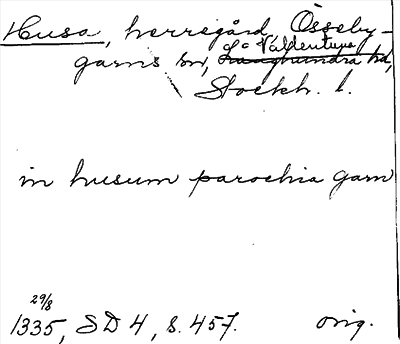 Husa, herregård, Össeby-
garns sn, Långhundra hd,
Vallentuna
Stockh. l.
in husum parochia garn
29/8
1335, SD 4, s. 457. orig.